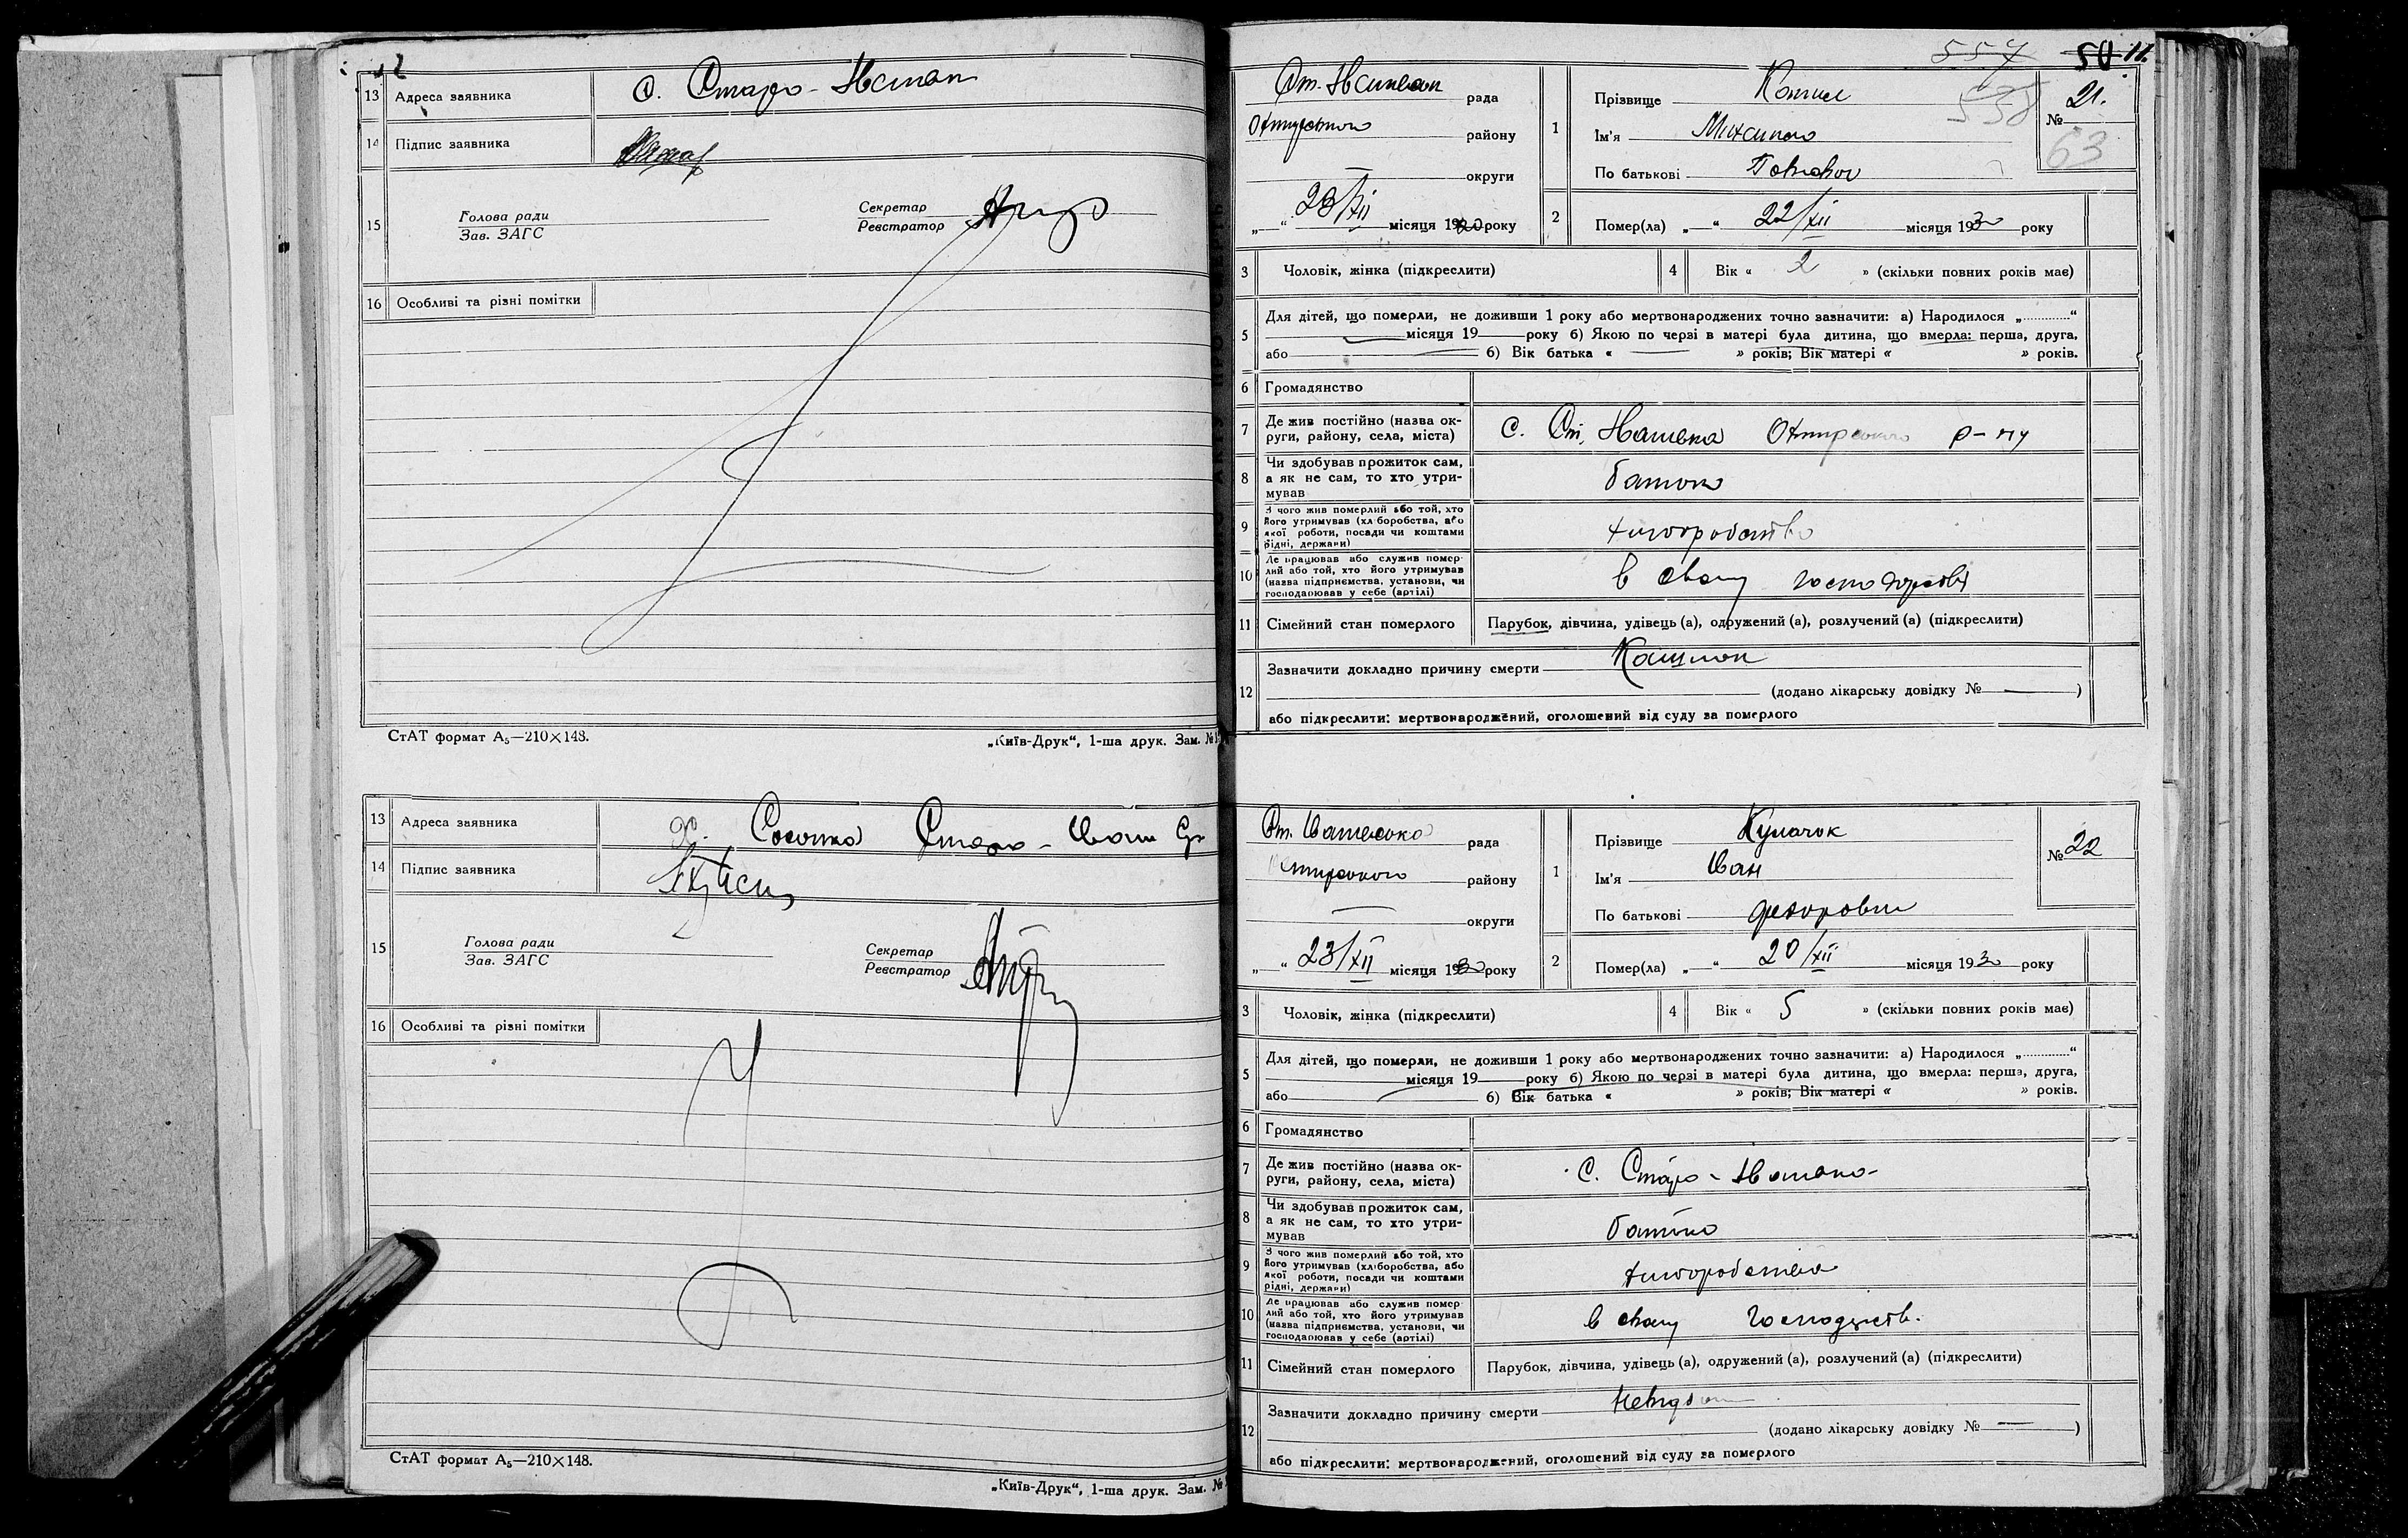 13 Адреса заявника с. Старо-
14 Підпис заявника
15 Голова ради
Зав. ЗАГС
Секретар
Реєстратор
16 Особливі та різні помітки
СтАТ формат А₅—210×148.
„Київ-Друк“, 1-ша друк. Зам. №
13 Адреса заявника Старо-
14 Підпис заявника
15 Голова ради
Зав. ЗАГС
Секретар
Реєстратор
16 Особливі та різні помітки
СтАТ формат А₅—210×148.
„Київ-Друк“, 1-ша друк. Зам. №
557 50 11.
558
63
Ст. рада
району
округи
„—“ 23/XII місяця 1930 року
1 Прізвище
Ім'я
По батькові
№ 21.
2 Помер(ла) „—“ 22/XII місяця 1930 року
3 Чоловік, жінка (підкреслити)
4 Вік « 2 » (скільки повних років має)
5 Для дітей, що померли, не доживши 1 року або мертвонароджених точно зазначити: а) Народилося „............“
місяця 19 року б) Якою по черзі в матері була дитина, що вмерла: перша, друга,
або б) Вік батька « — » років; Вік матері « » років.
6 Громадянство
7 Де жив постійно (назва ок-
руги, району, села, міста) с. Ст. р-ну
8 Чи здобував прожиток сам,
а як не сам, то хто утри-
мував батько
9 З чого жив померлий або той, хто
його утримував (хліборобства, або
якої роботи, посади чи коштами
рідні, держави) хліборобство
10 Де працював або служив помер-
лий або той, хто його утримував
(назва підприємства, установи, чи
господарював у себе (артілі) в свому господарстві
11 Сімейний стан померлого Парубок, дівчина, удівець (а), одружений (а), розлучений (а) (підкреслити)
12 Зазначити докладно причину смерти Кашлюк
(додано лікарську довідку № — )
або підкреслити: мертвонароджений, оголошений від суду за померлого
Ст. рада
району
округи
„—“ 23/XII місяця 1930 року
1 Прізвище Кулачок
Ім'я Іван
По батькові Федорович
№ 22
2 Помер(ла) „—“ 20/XII місяця 1930 року
3 Чоловік, жінка (підкреслити)
4 Вік « 5 » (скільки повних років має)
5 Для дітей, що померли, не доживши 1 року або мертвонароджених точно зазначити: а) Народилося „............“
місяця 19 року б) Якою по черзі в матері була дитина, що вмерла: перша, друга,
або б) Вік батька « » років; Вік матері « » років.
6 Громадянство
7 Де жив постійно (назва ок-
руги, району, села, міста) с. Старо-
8 Чи здобував прожиток сам,
а як не сам, то хто утри-
мував батько
9 З чого жив померлий або той, хто
його утримував (хліборобства, або
якої роботи, посади чи коштами
рідні, держави) хліборобства
10 Де працював або служив помер-
лий або той, хто його утримував
(назва підприємства, установи, чи
господарював у себе (артілі) в свому господарств.
11 Сімейний стан померлого Парубок, дівчина, удівець (а), одружений (а), розлучений (а) (підкреслити)
12 Зазначити докладно причину смерти
(додано лікарську довідку № — )
або підкреслити: мертвонароджений, оголошений від суду за померлого